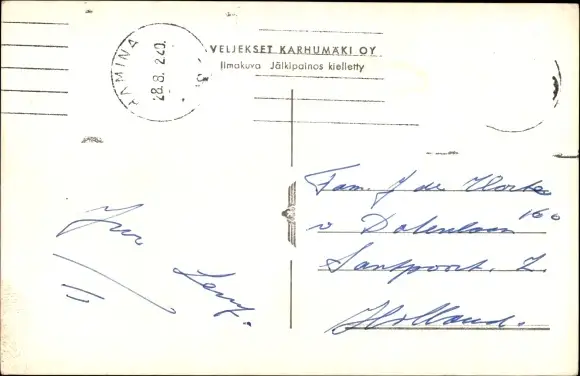 HAMINA
28.8. 2 20.
VELJEKSET KARHUMÄKI OY
Ilmakuva Jälkipainos kielletty
Fam. J de
v Dalenlaan 160
Santpoort. Z.
Holland.